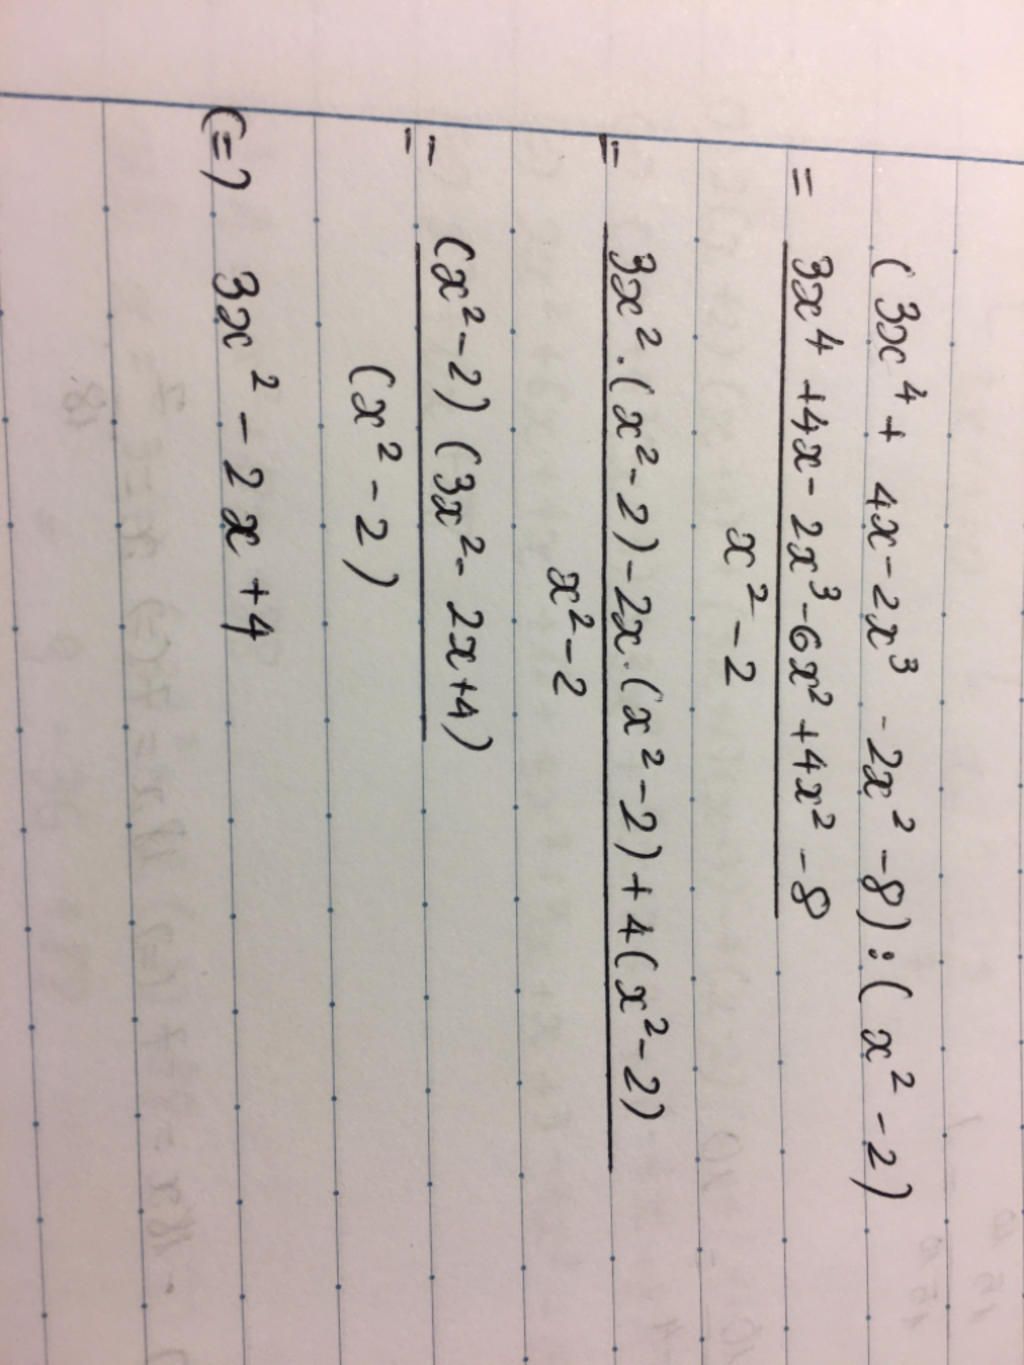 (3x⁴ + 4x - 2x³ - 2x² - 8) : (x² - 2)
= 3x⁴ + 4x - 2x³ - 6x² + 4x² - 8
x² - 2
= 3x² . (x² - 2) - 2x . (x² - 2) + 4(x² - 2)
x² - 2
= (x² - 2) (3x² - 2x + 4)
(x² - 2)
(=) 3x² - 2x + 4